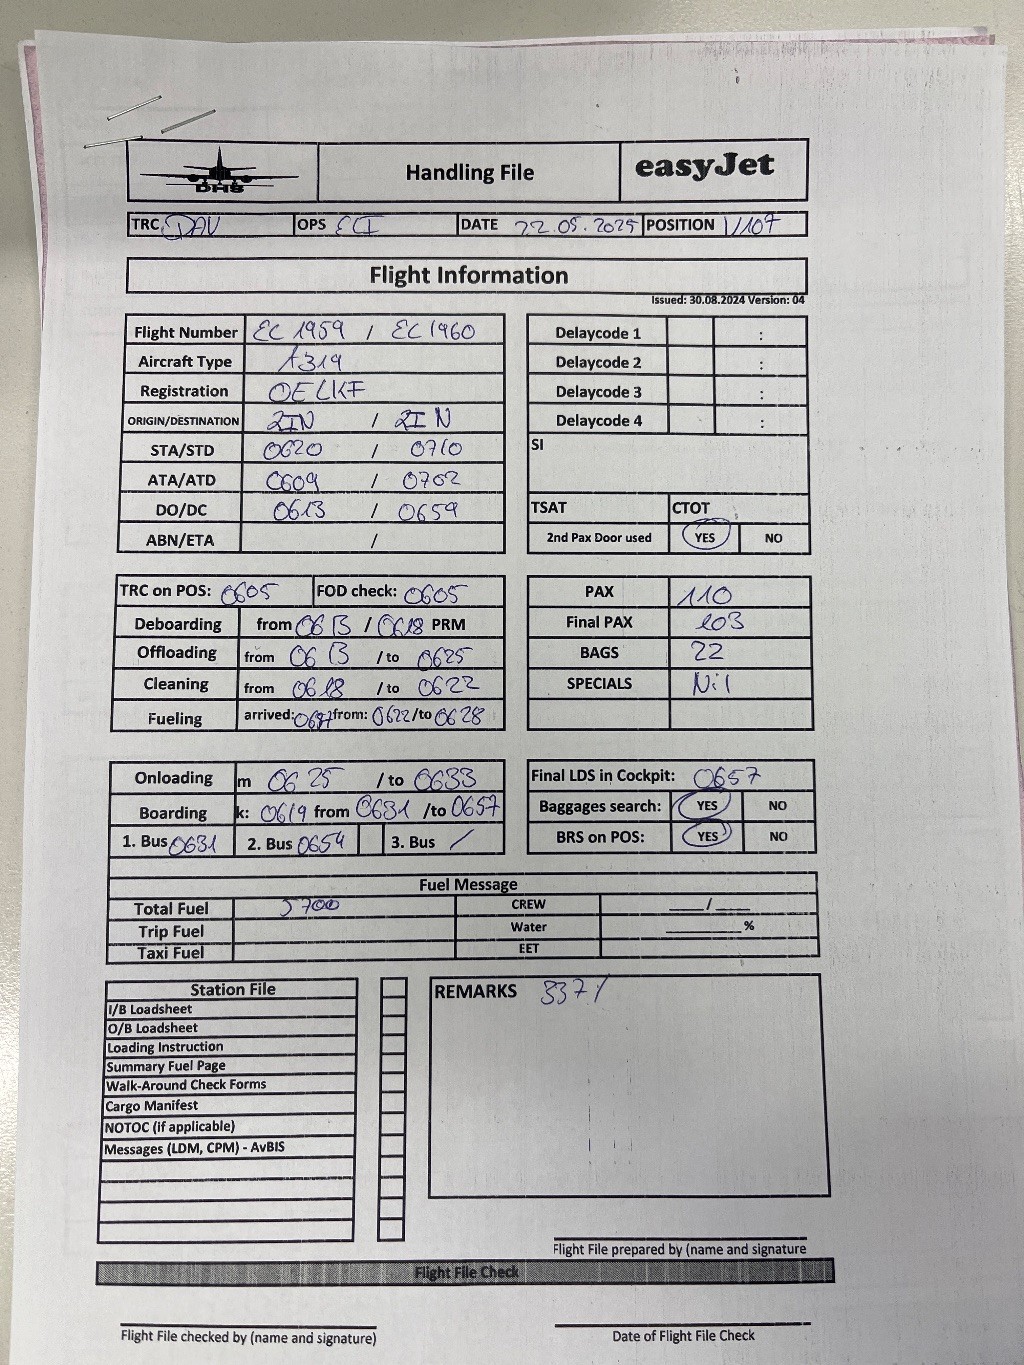 DHS
Handling File
easyJet
TRC DAV OPS ECI DATE 22.05.2025 POSITION V107
Flight Information
Issued: 30.08.2024 Version: 04
Flight Number EC 1959 / EC 1960
Aircraft Type A319
Registration OELKF
ORIGIN/DESTINATION ZIN / ZIN
STA/STD 0620 / 0710
ATA/ATD 0609 / 0702
DO/DC 0613 / 0659
ABN/ETA /
Delaycode 1 :
Delaycode 2 :
Delaycode 3 :
Delaycode 4 :
SI
TSAT CTOT
2nd Pax Door used YES NO
TRC on POS: 0605 FOD check: 0605
Deboarding from 0613 / 0618 PRM
Offloading from 0613 / to 0625
Cleaning from 0618 / to 0622
Fueling arrived: from: 0622 /to 0628
PAX 110
Final PAX 103
BAGS 22
SPECIALS Nil
Onloading m 0625 / to 0633
Boarding k: 0619 from 0631 /to 0657
1. Bus 0631 2. Bus 0654 3. Bus /
Final LDS in Cockpit: 0657
Baggages search: YES NO
BRS on POS: YES NO
Fuel Message
Total Fuel 5700 CREW ____/____
Trip Fuel Water ________%
Taxi Fuel EET
Station File
I/B Loadsheet
O/B Loadsheet
Loading Instruction
Summary Fuel Page
Walk-Around Check Forms
Cargo Manifest
NOTOC (if applicable)
Messages (LDM, CPM) - AvBIS
REMARKS 337/
Flight File prepared by (name and signature
Flight File Check
Flight File checked by (name and signature)
Date of Flight File Check